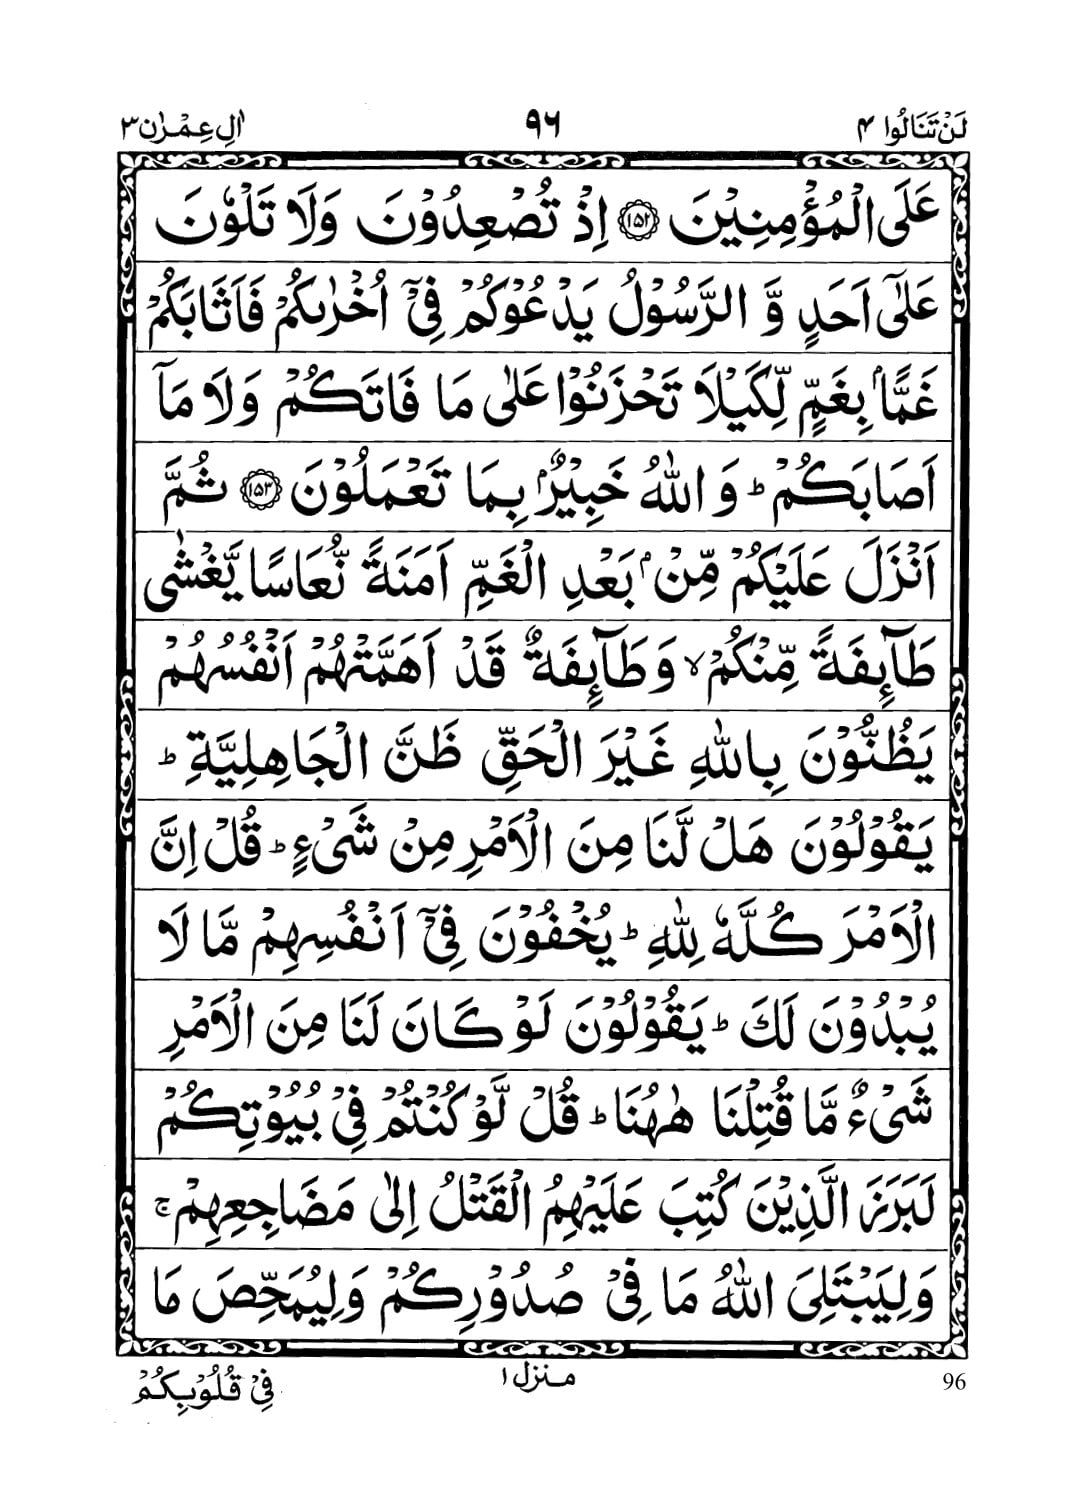 لَنْ تَنَالُوا ۴ ۹۶ اٰلِ عِمْرٰن ۳
عَلَى الْمُؤْمِنِيْنَ ﴿۱۵۲﴾ اِذْ تُصْعِدُوْنَ وَلَا تَلْوٗنَ
عَلٰٓى اَحَدٍ وَّ الرَّسُوْلُ يَدْعُوْكُمْ فِيْٓ اُخْرٰىكُمْ فَاَثَابَكُمْ
غَمًّۢا بِغَمٍّ لِّكَيْلَا تَحْزَنُوْا عَلٰى مَا فَاتَكُمْ وَلَا مَآ
اَصَابَكُمْ ؕ وَ اللّٰهُ خَبِيْرٌۢ بِمَا تَعْمَلُوْنَ ﴿۱۵۳﴾ ثُمَّ
اَنْزَلَ عَلَيْكُمْ مِّنْۢ بَعْدِ الْغَمِّ اَمَنَةً نُّعَاسًا يَّغْشٰى
طَآىِٕفَةً مِّنْكُمْ ۙ وَ طَآىِٕفَةٌ قَدْ اَهَمَّتْهُمْ اَنْفُسُهُمْ
يَظُنُّوْنَ بِاللّٰهِ غَيْرَ الْحَقِّ ظَنَّ الْجَاهِلِيَّةِ ؕ
يَقُوْلُوْنَ هَلْ لَّنَا مِنَ الْاَمْرِ مِنْ شَيْءٍ ؕ قُلْ اِنَّ
الْاَمْرَ كُلَّهٗ لِلّٰهِ ؕ يُخْفُوْنَ فِيْٓ اَنْفُسِهِمْ مَّا لَا
يُبْدُوْنَ لَكَ ؕ يَقُوْلُوْنَ لَوْ كَانَ لَنَا مِنَ الْاَمْرِ
شَيْءٌ مَّا قُتِلْنَا هٰهُنَا ؕ قُلْ لَّوْ كُنْتُمْ فِيْ بُيُوْتِكُمْ
لَبَرَزَ الَّذِيْنَ كُتِبَ عَلَيْهِمُ الْقَتْلُ اِلٰى مَضَاجِعِهِمْ ۚ
وَلِيَبْتَلِيَ اللّٰهُ مَا فِيْ صُدُوْرِكُمْ وَلِيُمَحِّصَ مَا
96 منزل ۱ فِيْ قُلُوْبِكُمْ